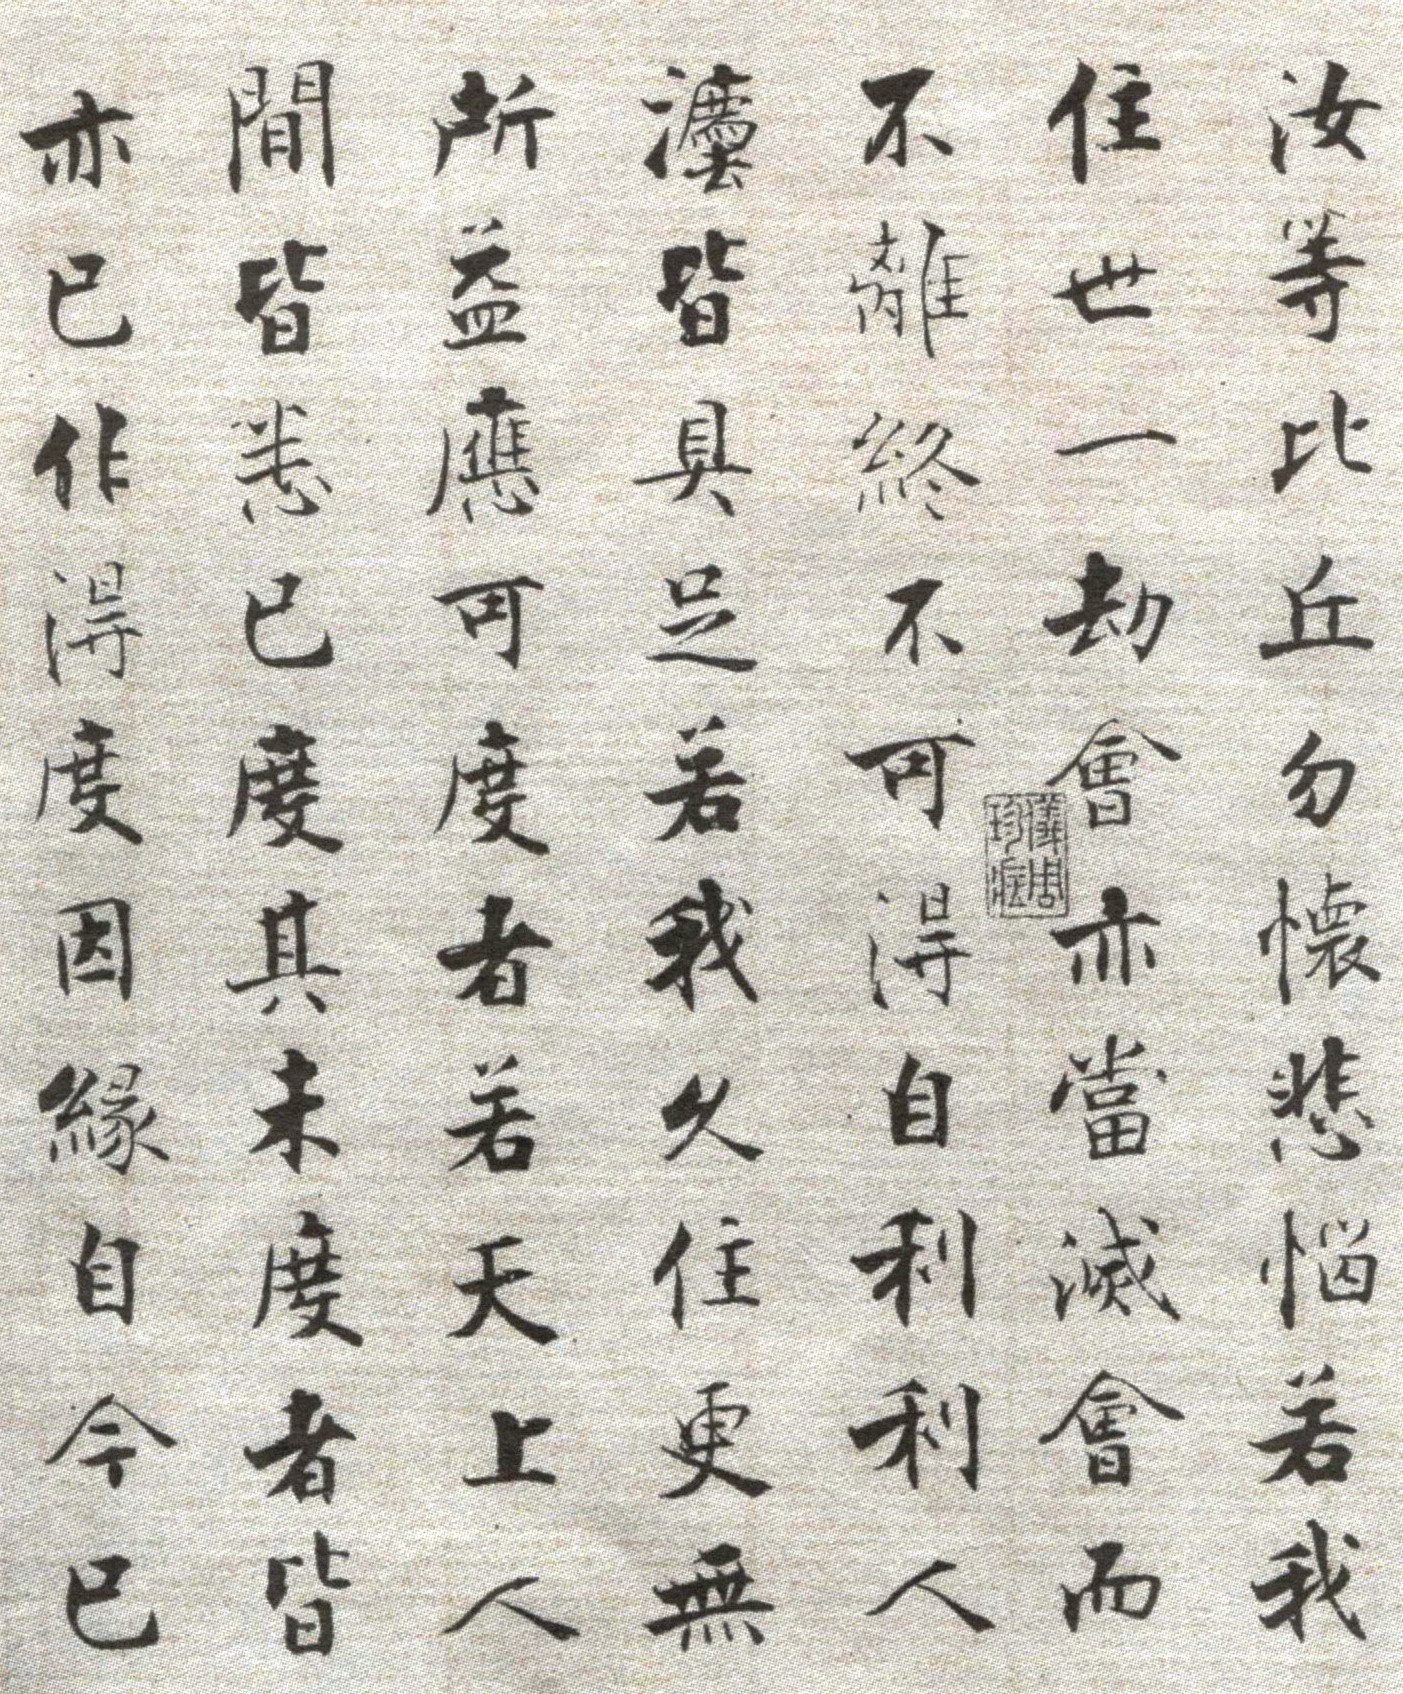 汝等比丘勿懷悲惱若我
住世一劫會亦當滅會而
不離終不可得自利利人
灋皆具足若我久住更無
所益應可度者若天上人
間皆悉已度其未度者皆
亦已作得度因緣自今已